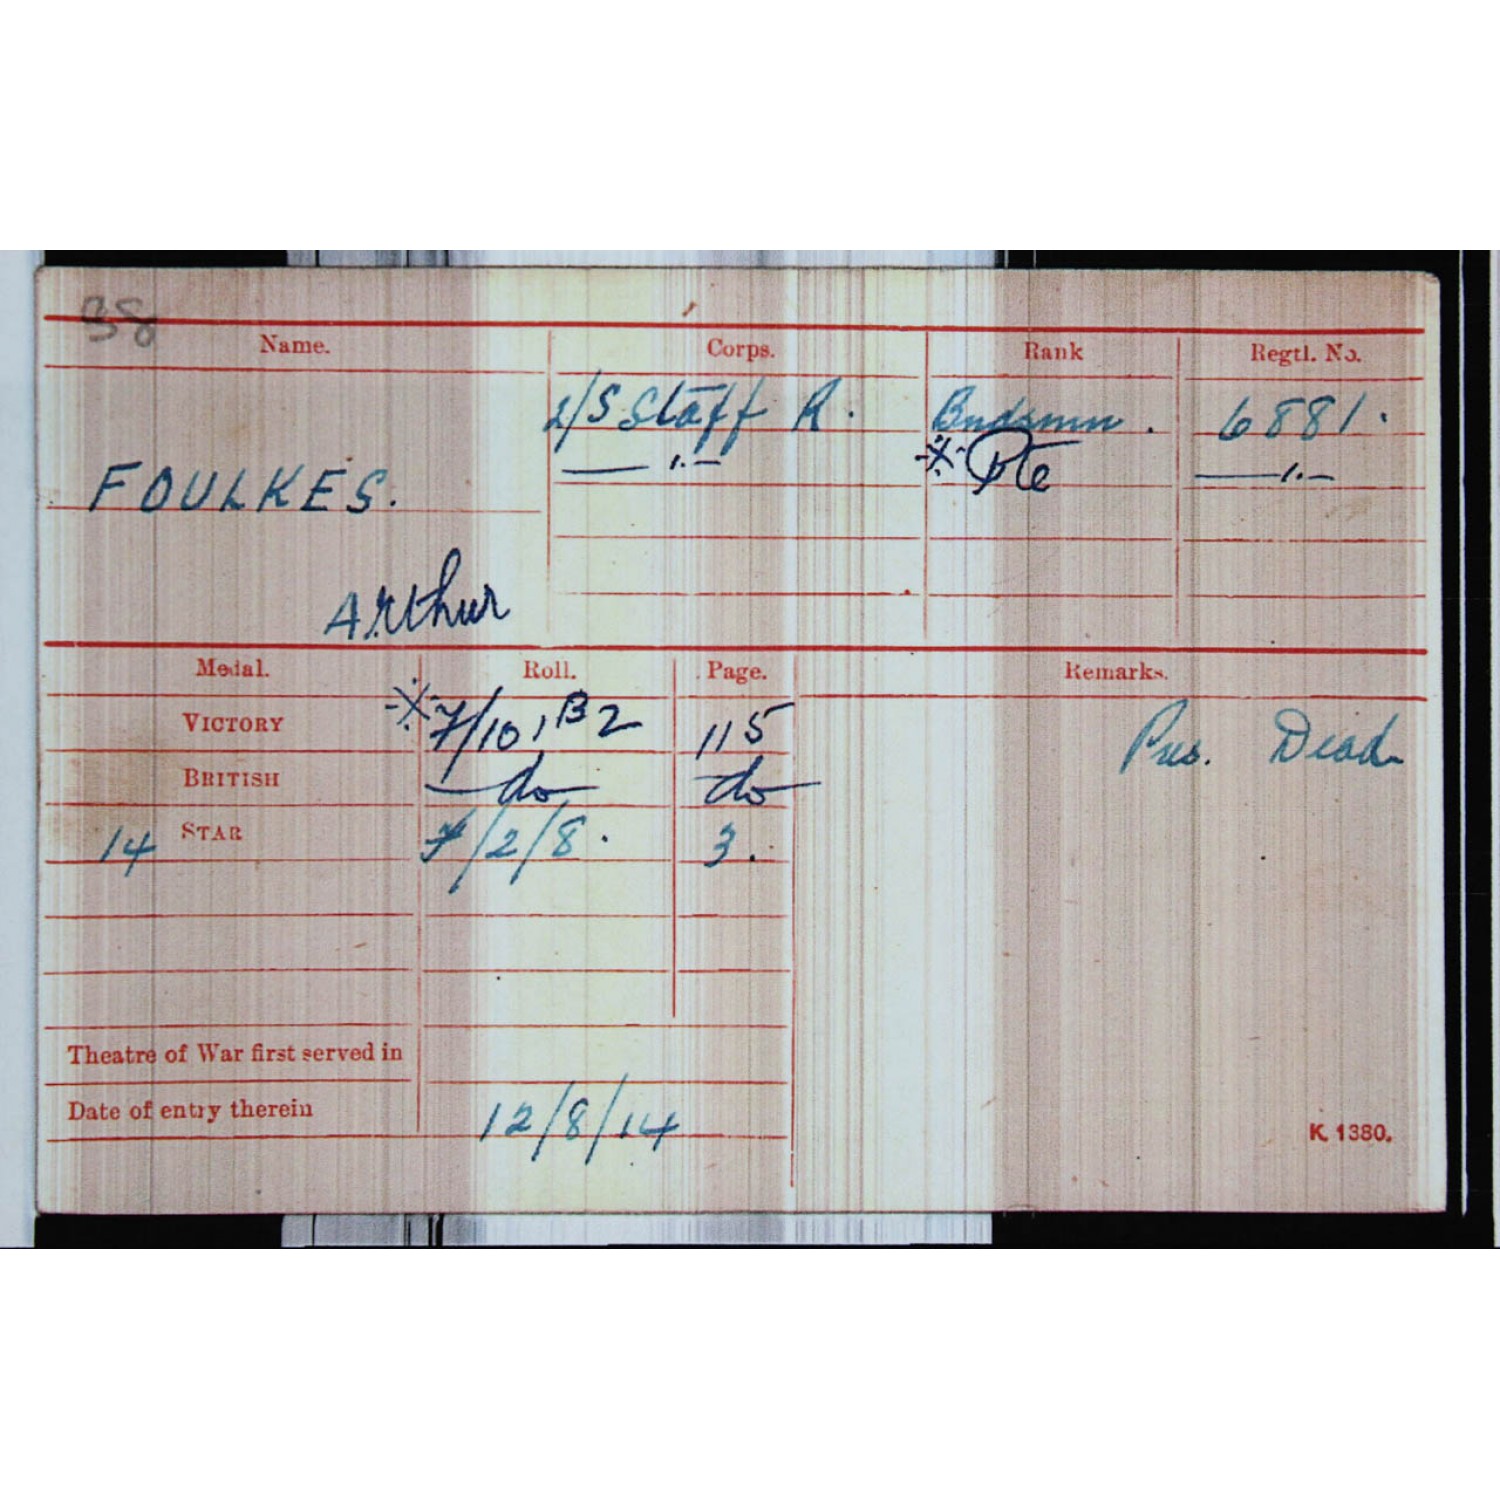 38
Name. Corps. Rank Regtl. No.
2/S Staff R. Bndsmn. 6881.
FOULKES. —— 1.— ※ Pte —— 1.—
Arthur
Medal. Roll. Page. Remarks.
VICTORY ※ 7/101 B2 115 Pres. Dead
BRITISH do do
14 STAR 7/2/8. 3.
Theatre of War first served in
Date of entry therein 12/8/14
K. 1380.